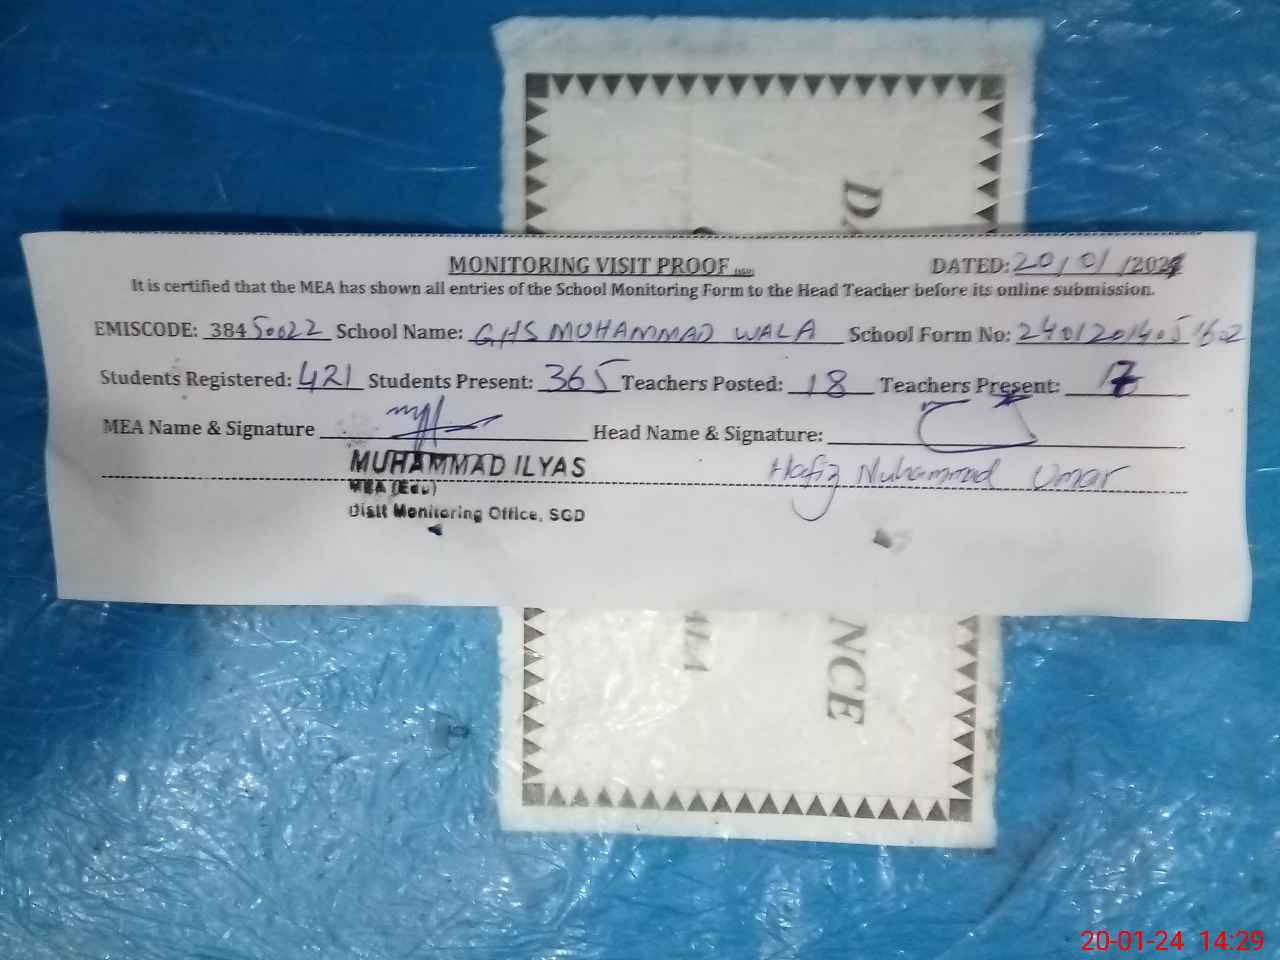 MONITORING VISIT PROOF DATED: 20/01/2024
It is certified that the MEA has shown all entries of the School Monitoring Form to the Head Teacher before its online submission.
EMISCODE: 38450022 School Name: GHS MUHAMMAD WALA School Form No:
Students Registered: 421 Students Present: 365 Teachers Posted: 18 Teachers Present: 17
MEA Name & Signature Head Name & Signature:
MUHAMMAD ILYAS Hafiz Muhammad Umar
MEA (Edu)
Distt Monitoring Office, SGD
NCE
20-01-24 14:29